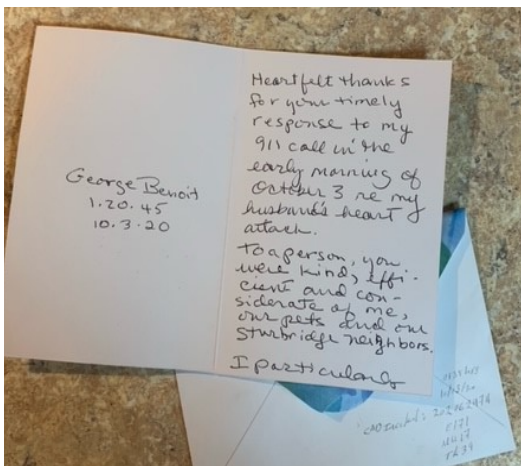 George Benoit
1.20.45
10.3.20
Heartfelt thanks
for your timely
response to my
911 call in the
early morning of
October 3 re my
husband's heart
attack.
To a person, you
were kind, effi-
cient and con-
siderate of me,
our pets and our
Sturbridge neighbors.
I particularly